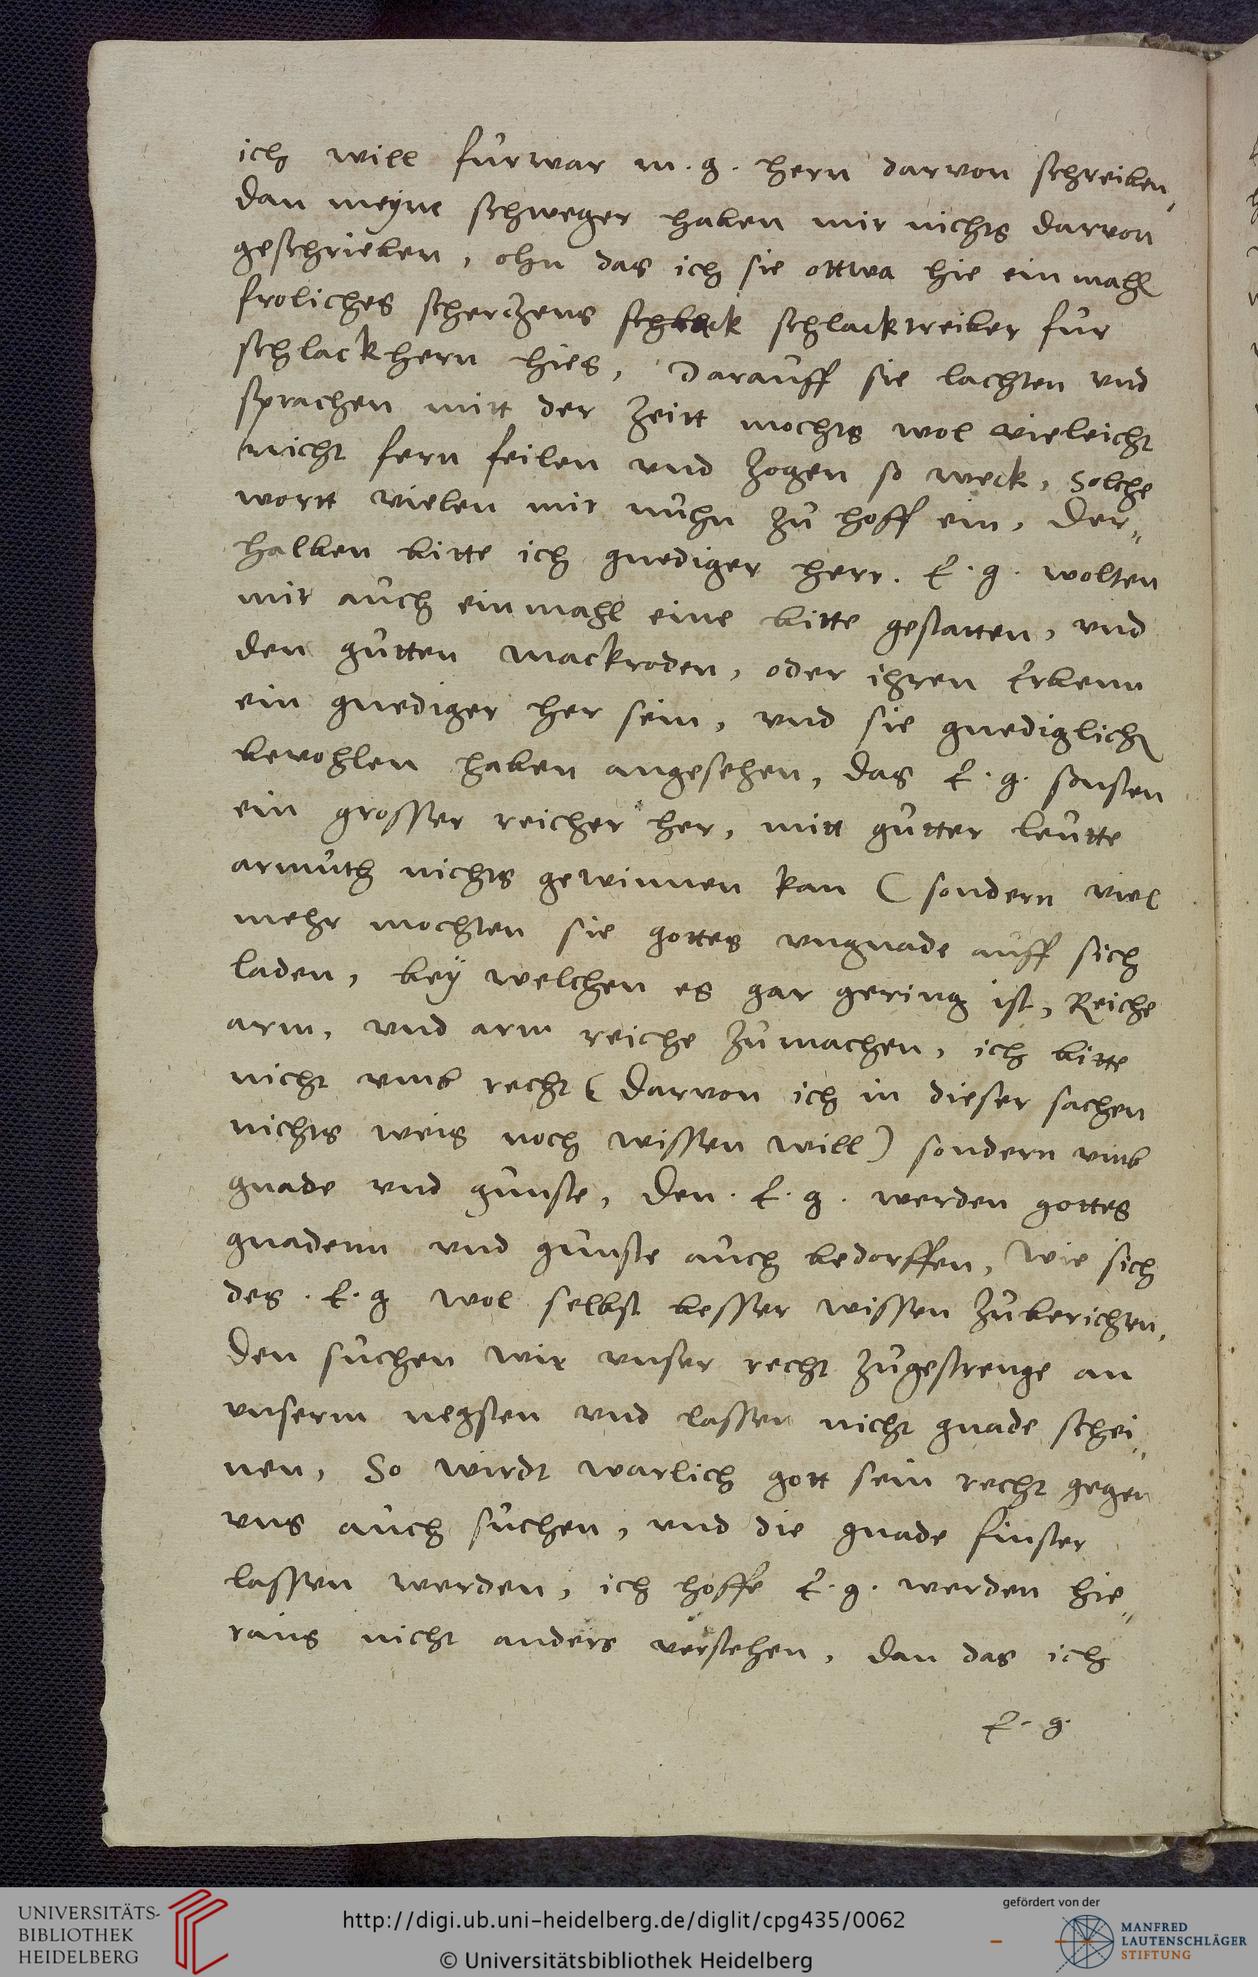 ich will furwar m. g. hern darvon schreiben,
dan meyne schweger haben mir nichts darvon
geschrieben, ohn das ich sie ettwa hie ein mahl
froliches scherzens schlack treiber fur
schlackhern hies, Darauff sie lachten vnd
sprachen mitt der zeitt mochts wol vieleicht
nicht fern feilen vnd zogen so weck, Solche
wortt vielen mir nuhn zu hoff ein, Der„
halben bitte ich gnediger herr. E. g. wolten
mir auch ein mahl eine bitte gestatten, vnd
den gutten Mackroden, oder ihren Erbenn
ein gnediger her sein, vnd sie gnediglich
bevohlen haben angesehen, das E. g. sonsten
ein grosser reicher her, mitt gutter leutte
armuth nichts gewinnen kan ( sondern viel
mehr mochten sie gottes vngnade auff sich
laden, bey welchen es gar gering ist, Reiche
arm, vnd arm reiche zumachen, ich bitte
nicht vmb recht ( darvon ich in dieser sachen
nichts weis noch wissen will ) sondern vmb
gnade vnd gunste, Den. E. g. werden gottes
gnadenn vnd gunste auch bedorffen, Wie sich
des. E. g wol selbst besser wissen zuberichten,
Den suchen wir vnser recht zugestrenge an
vnserm negsten vnd lassen nicht gnade schei„
nen, So wirdt warlich gott sein recht gegen
vns auch suchen, vnd die gnade finster
lassen werden, ich hoffe E. g. werden hie„
raus nicht anders verstehen, dan das ich
E. g.
UNIVERSITÄTS-
BIBLIOTHEK
HEIDELBERG
http://digi.ub.uni-heidelberg.de/diglit/cpg435/0062
© Universitätsbibliothek Heidelberg
gefördert von der
MANFRED
LAUTENSCHLÄGER
STIFTUNG